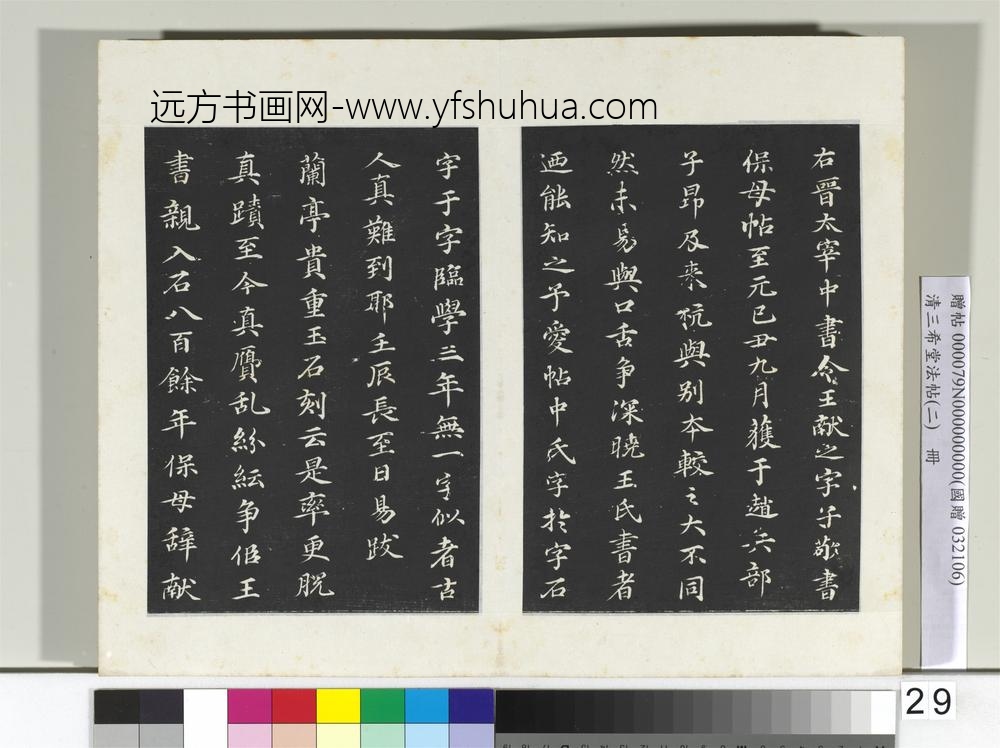 远方书画网-www.yfshuhua.com
右晉太宰中書令王献之字子敬書
保母帖至元己丑九月獲于趙兵部
子昂及来杭與别本較之大不同
然未易與口舌争深曉王氏書者
迺能知之予愛帖中氏字於字石
字于字臨學三年無一字似者古
人真難到耶壬辰長至日易跋
蘭亭貴重玉石刻云是率更脱
真蹟至今真贋乱紛紜争佀王
書親入石八百餘年保母辞献
贈帖 000079N000000000(國贈 032106)
清三希堂法帖(二) 冊
29